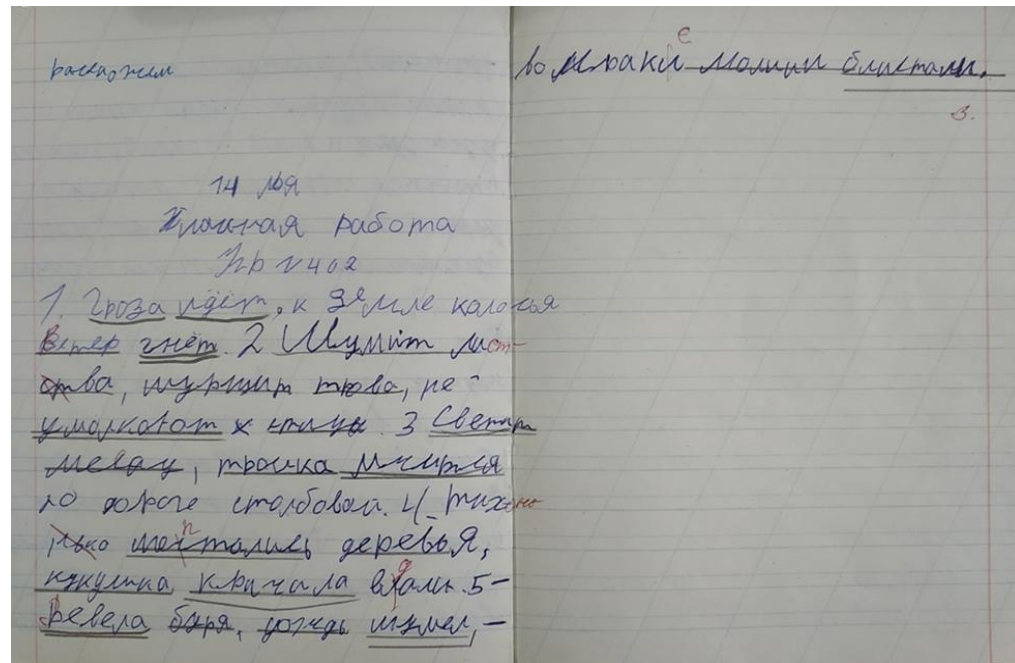 расскажем
14 мая
Классная работа
Упр №402
1. Гроза идёт, к земле колосья
Ветер гнёт. 2 Шумит лист-
ва, шуршит трова, не
умолкают птицы. 3 Светит
месяц, тройка мчится
по дороге столбовой. 4. Тихоно
лько шептались деревья,
кукушка кричала вдали. 5-
Ревела буря, дождь шумел, -
во мраке молнии блистали.
3.